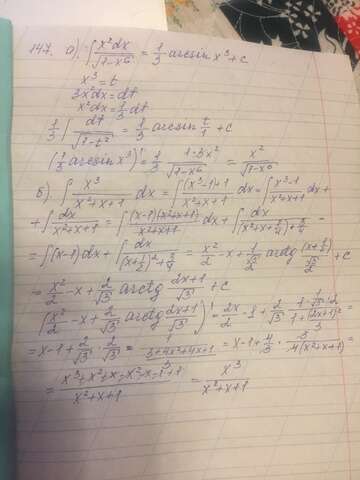 147. а). ∫ x²dx/√(1-x⁶) = 1/3 arcsin x³ + c
x³ = t
3x²dx = dt
x²dx = 1/3 dt
1/3 ∫ dt/√(1-t²) = 1/3 arcsin t/1 + c
(1/3 arcsin x³)' = 1/3 · 1·3x²/√(1-x⁶) = x²/√(1-x⁶)
б). ∫ x³/(x²+x+1) dx = ∫ ((x³-1)+1)/(x²+x+1) dx = ∫ (x³-1)/(x²+x+1) dx +
+ ∫ dx/(x²+x+1) = ∫ (x-1)(x²+x+1)/(x²+x+1) dx + ∫ dx/((x²+x+1/4)+3/4) =
= ∫(x-1)dx + ∫ dx/((x+1/2)²+3/4) = x²/2 - x + arctg + c
= x²/2 - x + 2/√3 arctg (2x+1)/√3 + c
(x²/2 - x + 2/√3 arctg (2x+1)/√3)' = 2x/2 - 1 + 2/√3 ·
= x-1 + 2/√3 · 2/√3 · = x-1 + 4/3 · 3/(4(x²+x+1)) =
= (x³+x²+x-x²-x-1+1)/(x²+x+1) = x³/(x²+x+1)